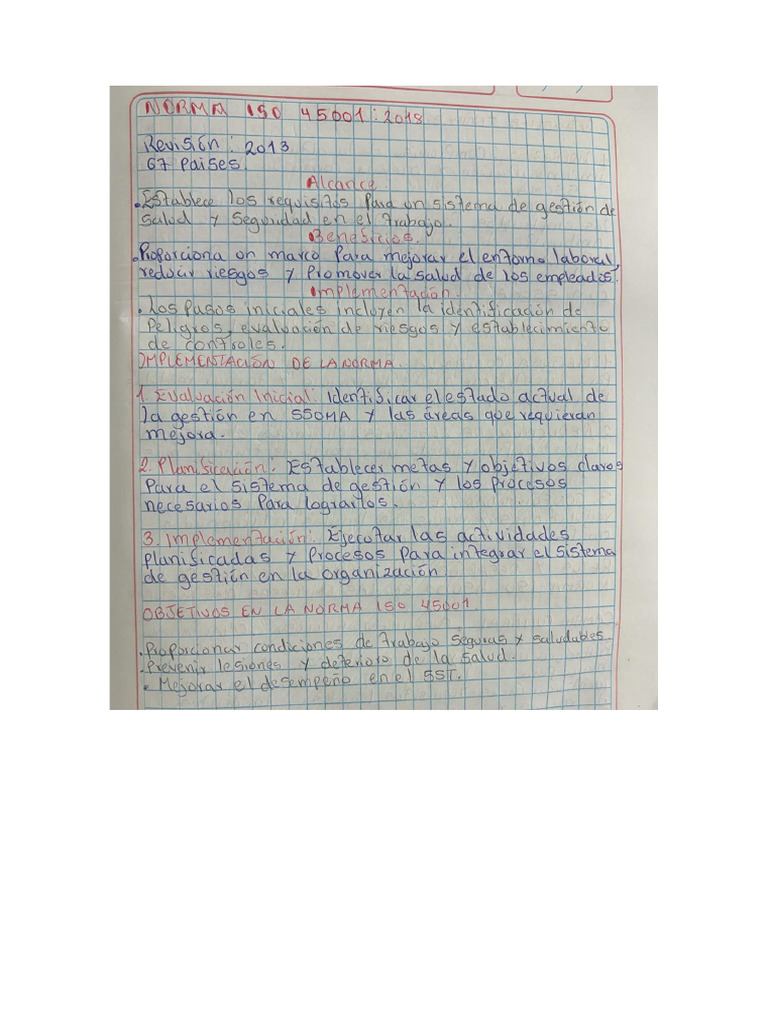 NORMA ISO 45001:2018
Revisión: 2013
67 Paises
Alcance
• Establece los requisitos Para un sistema de gestión de
salud y Seguridad en el trabajo.
Beneficios.
• Proporciona un marco Para mejorar el entorno laboral,
reducir riesgos y Promover la salud de los empleados.
Implementación.
• Los Pasos iniciales incluyen la identificación de
Peligros, evaluación de riesgos y establecimiento
de controles.
IMPLEMENTACIÓN DE LA NORMA.
1. Evaluación Inicial: Identificar el estado actual de
la gestión en SSOMA y las áreas que requieran
mejora.
2. Planificación: Establecer metas y objetivos claros
Para el sistema de gestión y los Procesos
necesarios Para lograrlos.
3. Implementación: Ejecutar las actividades
Planificadas y Procesos Para integrar el sistema
de gestión en la organización
OBJETIVOS EN LA NORMA ISO 45001.
• Proporcionar condiciones de trabajo seguras y saludables.
- Prevenir lesiones y deterioro de la salud.
- Mejorar el desempeño en el SST.